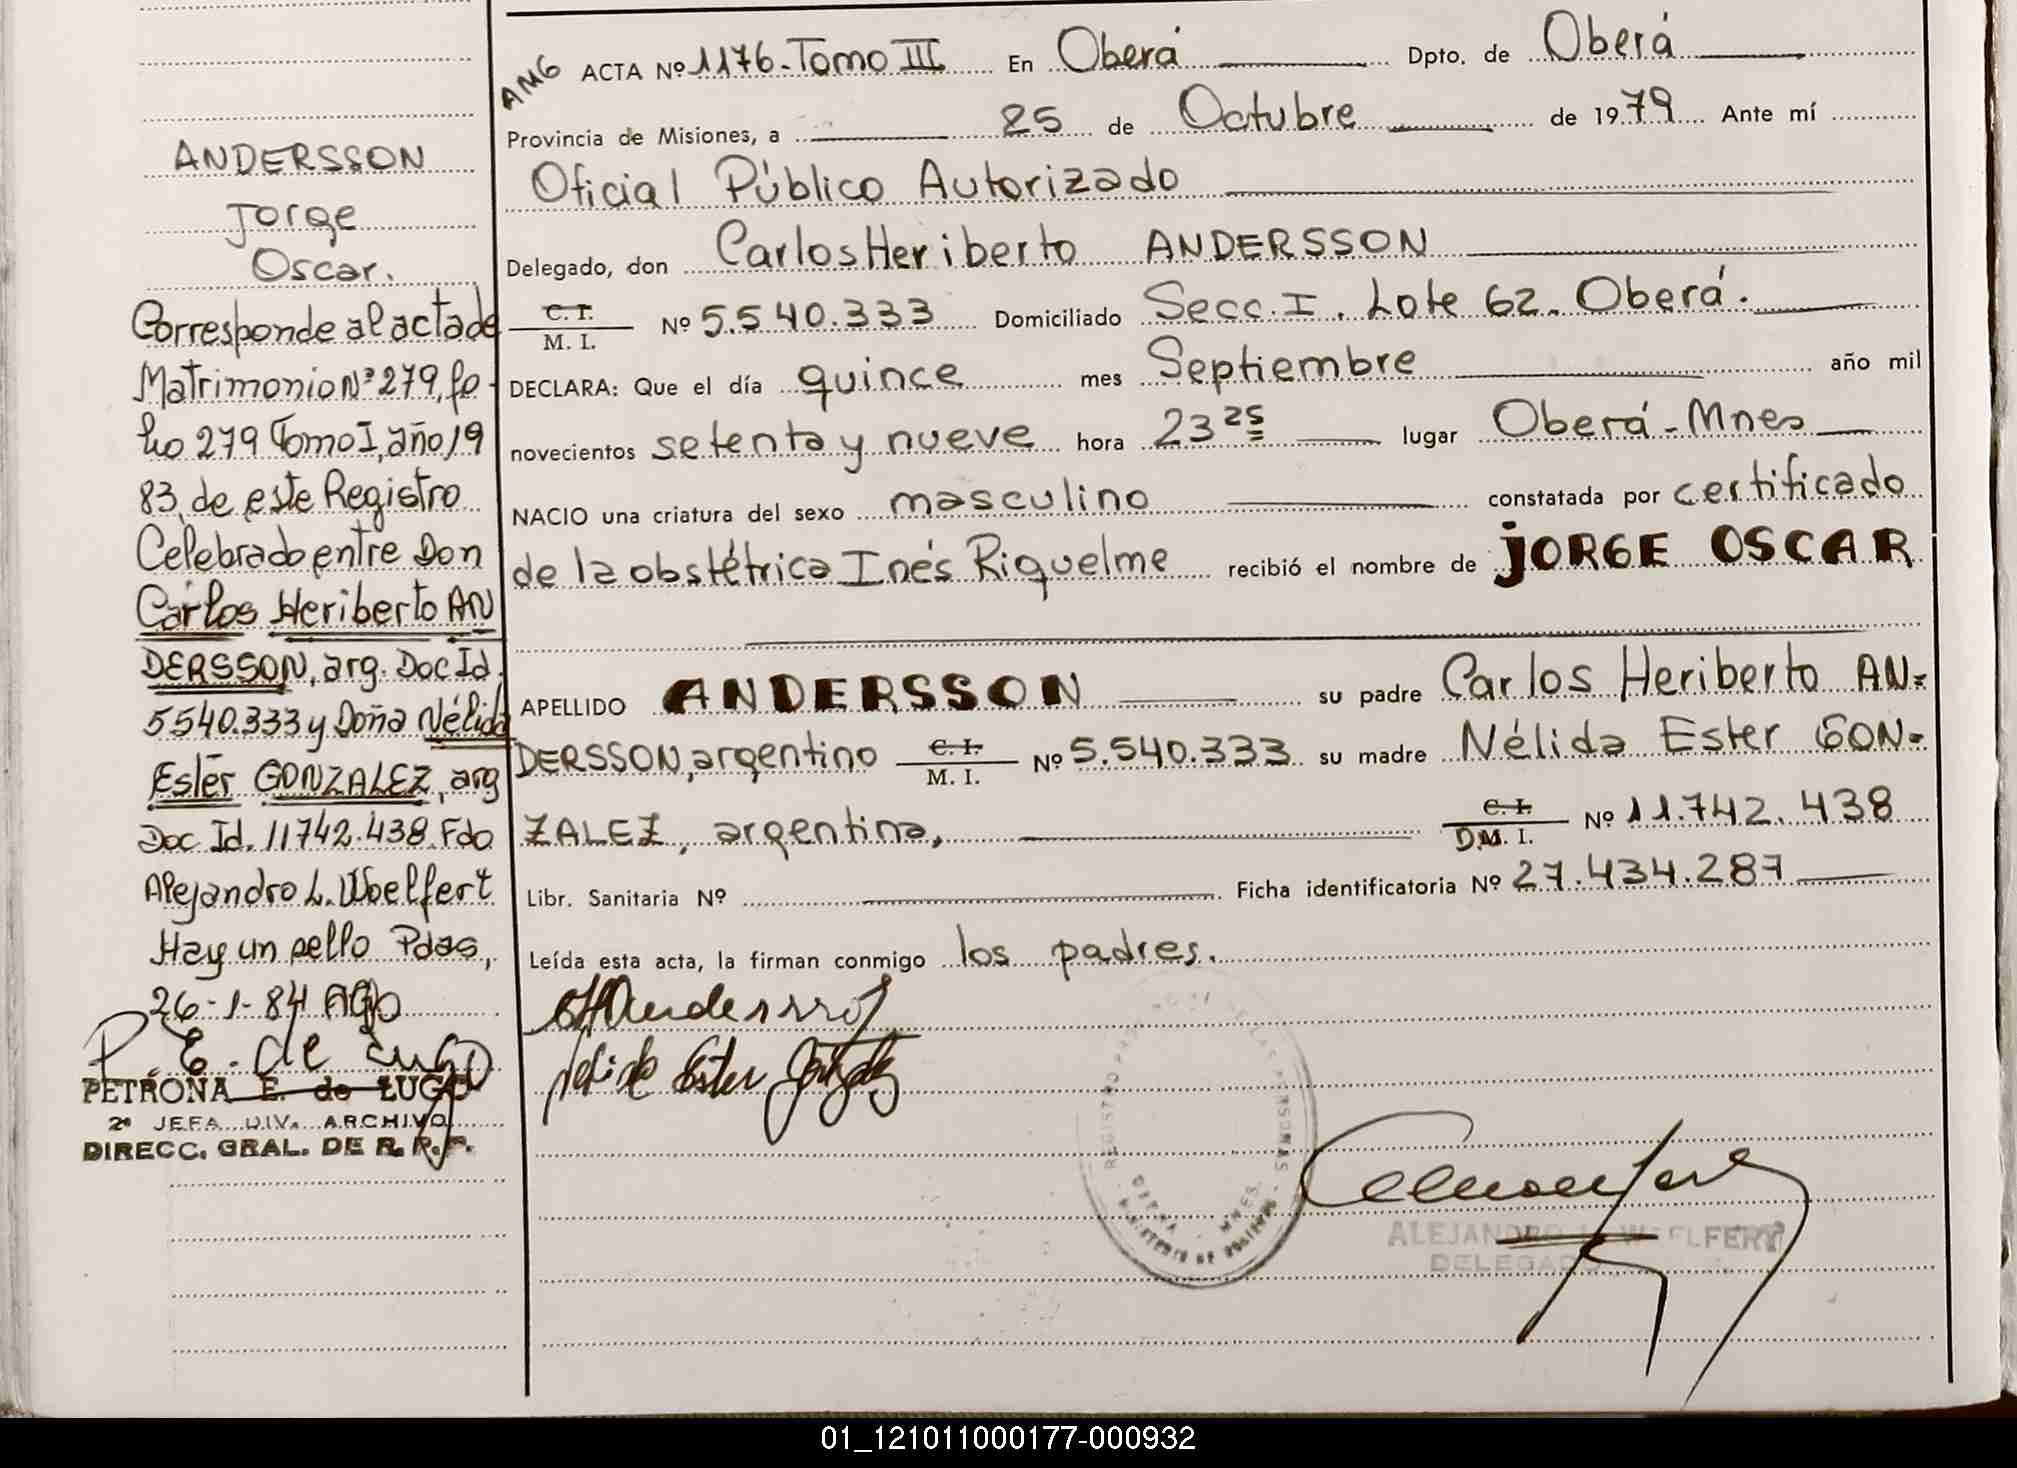 ANDERSSON
Jorge
Oscar.
Corresponde al acta de
Matrimonio Nº 279, fo-
lio 279 Tomo I, año 19
83, de este Registro
Celebrado entre Don
Carlos Heriberto AN
DERSSON, arg. Doc Id.
5540.333 y Doña Nélida
Ester GONZALEZ, arg
Doc Id. 11742.438. Fdo
Alejandro L. Woelfert
Hay un sello Pdas,
26-1-84
P. E. de Lugo
PETRONA E. de LUGO
2ª JEFA DIV. ARCHIVO
DIRECC. GRAL. DE R. R. P.
AMG ACTA Nº 1176-Tomo III En Oberá Dpto. de Oberá
Provincia de Misiones, a 25 de Octubre de 1979 Ante mí
Oficial Público Autorizado
Delegado, don Carlos Heriberto ANDERSSON
C. I. / M. I. Nº 5.540.333 Domiciliado Secc. I. Lote 62. Oberá.
DECLARA: Que el día quince mes Septiembre año mil
novecientos setenta y nueve hora 23 25 lugar Oberá-Mnes
NACIO una criatura del sexo masculino constatada por certificado
de la obstétrica Inés Riquelme recibió el nombre de JORGE OSCAR
APELLIDO ANDERSSON su padre Carlos Heriberto AN-
DERSSON, argentino C. I. / M. I. Nº 5.540.333 su madre Nélida Ester GON-
ZALEZ, argentina, C. I. / D.M. I. Nº 11.742.438
Libr. Sanitaria Nº Ficha identificatoria Nº 27.434.287
Leída esta acta, la firman conmigo los padres.
Nelida Ester
ALEJANDRO L. WOELFERT
DELEGADO
01_121011000177-000932